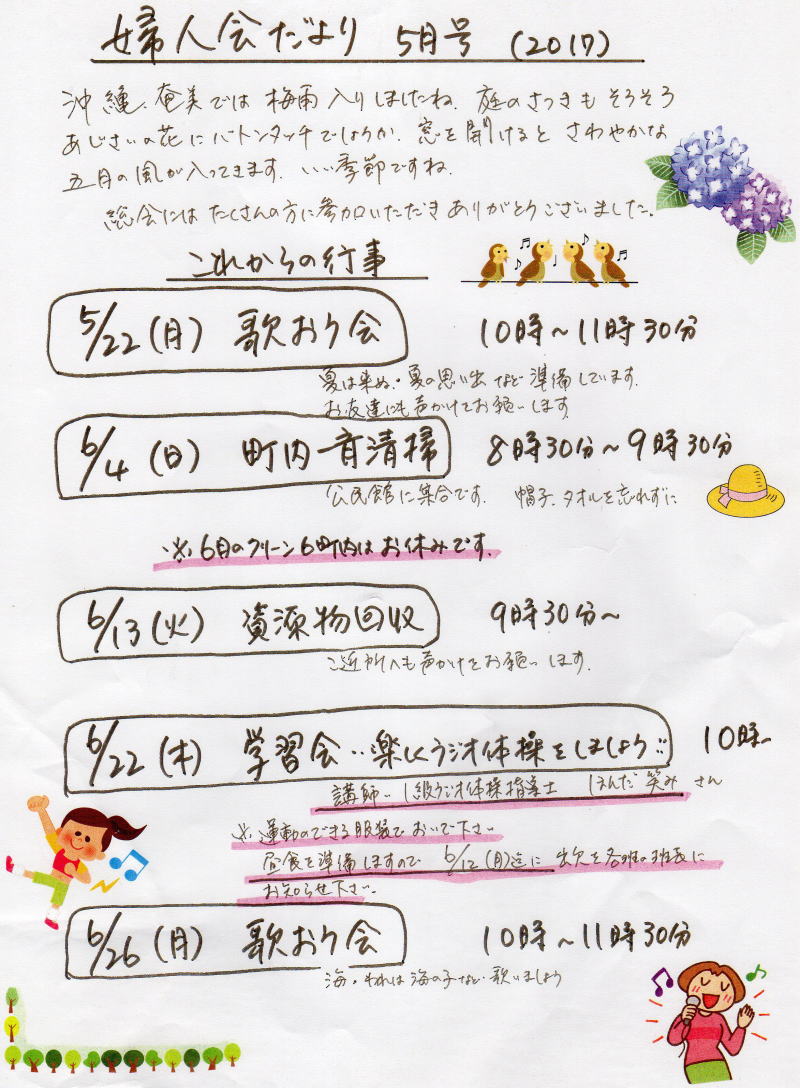 婦人会だより 5月号 (2017)
沖縄、奄美では梅雨入りしましたね。庭のさつきもそろそろ
あじさいの花にバトンタッチでしょうか。窓を開けるとさわやかな
五月の風が入ってきます。いい季節ですね。
総会にはたくさんの方に参加いただきありがとうございました。
これからの行事
5/22(月) 歌おう会 10時〜11時30分
夏は来ぬ・夏の思い出など準備しています。
お友達にも声かけてお願いします。
6/4(日) 町内一斉清掃 8時30分〜9時30分
公民館に集合です。 帽子、タオルを忘れずに
※6月のクリーン6町内はお休みです。
6/13(火) 資源物回収 9時30分〜
ご近所へも声かけをお願いします。
6/22(木) 学習会‥楽しくラジオ体操をしましょう‥ 10時〜
講師‥1級ラジオ体操指導士 ほんだ 笑み さん
※運動のできる服装でおいで下さい
昼食を準備しますので 6/12(月)迄に 出欠を各班の班長に
お知らせ下さい。
6/26(月) 歌おう会 10時〜11時30分
海・われは海の子など歌いましょう